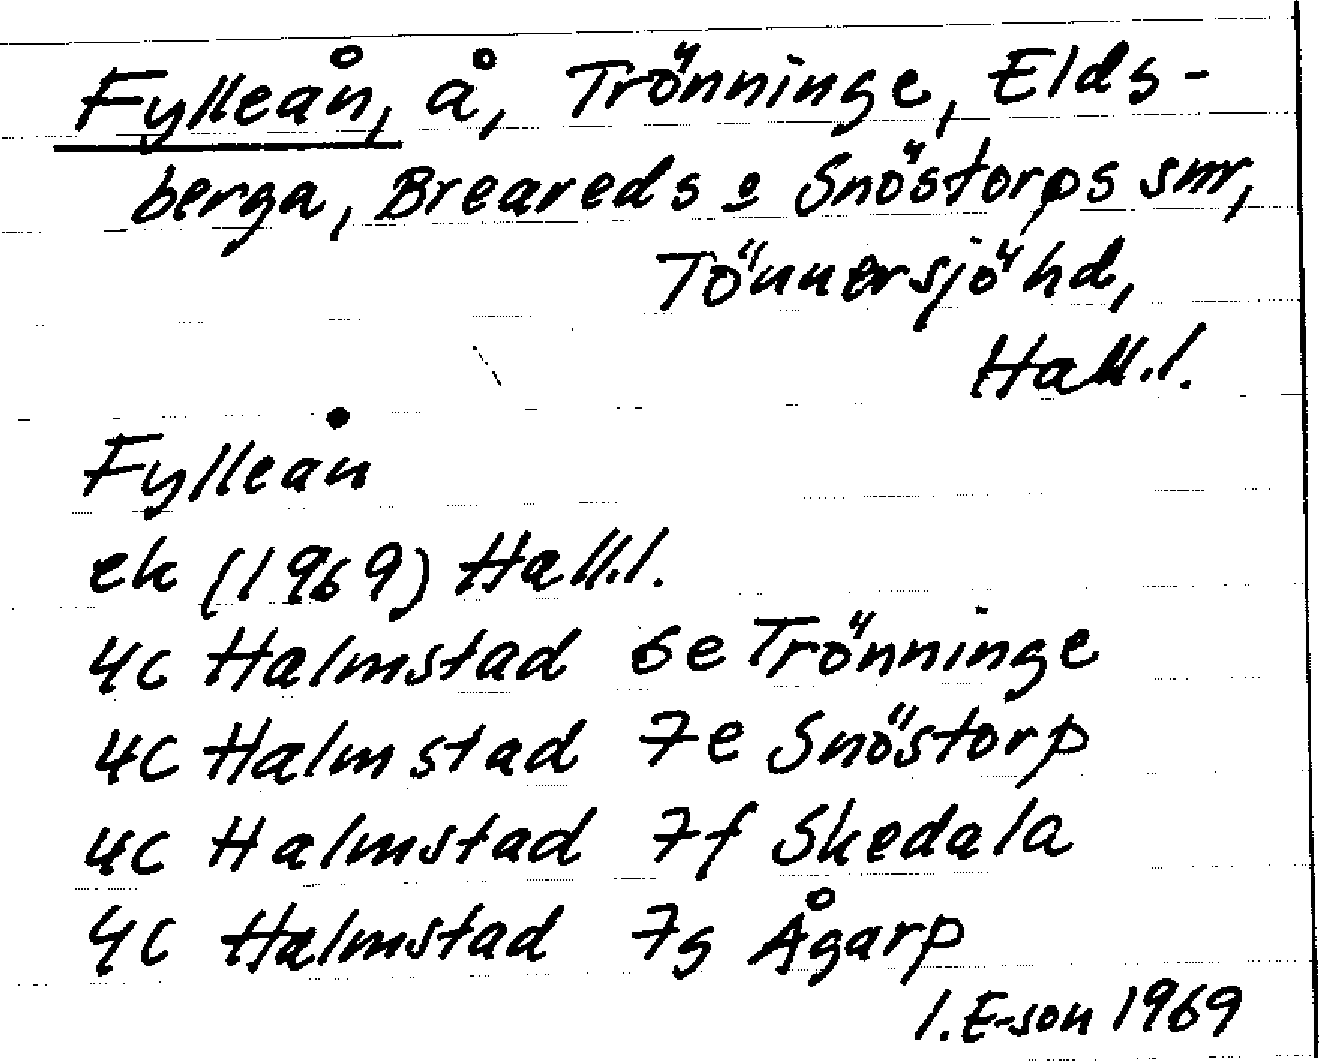 Fylleån, å, Trönninge, Elds-
berga, Breareds o Snöstorps snr,
Tönnersjö hd,
Hall.l.
Fylleån
ek (1969) Hall.l.
4C Halmstad 6e Trönninge
4C Halmstad 7e Snöstorp
4C Halmstad 7f Skedala
4C Halmstad 7g Ågarp
I. E-son 1969